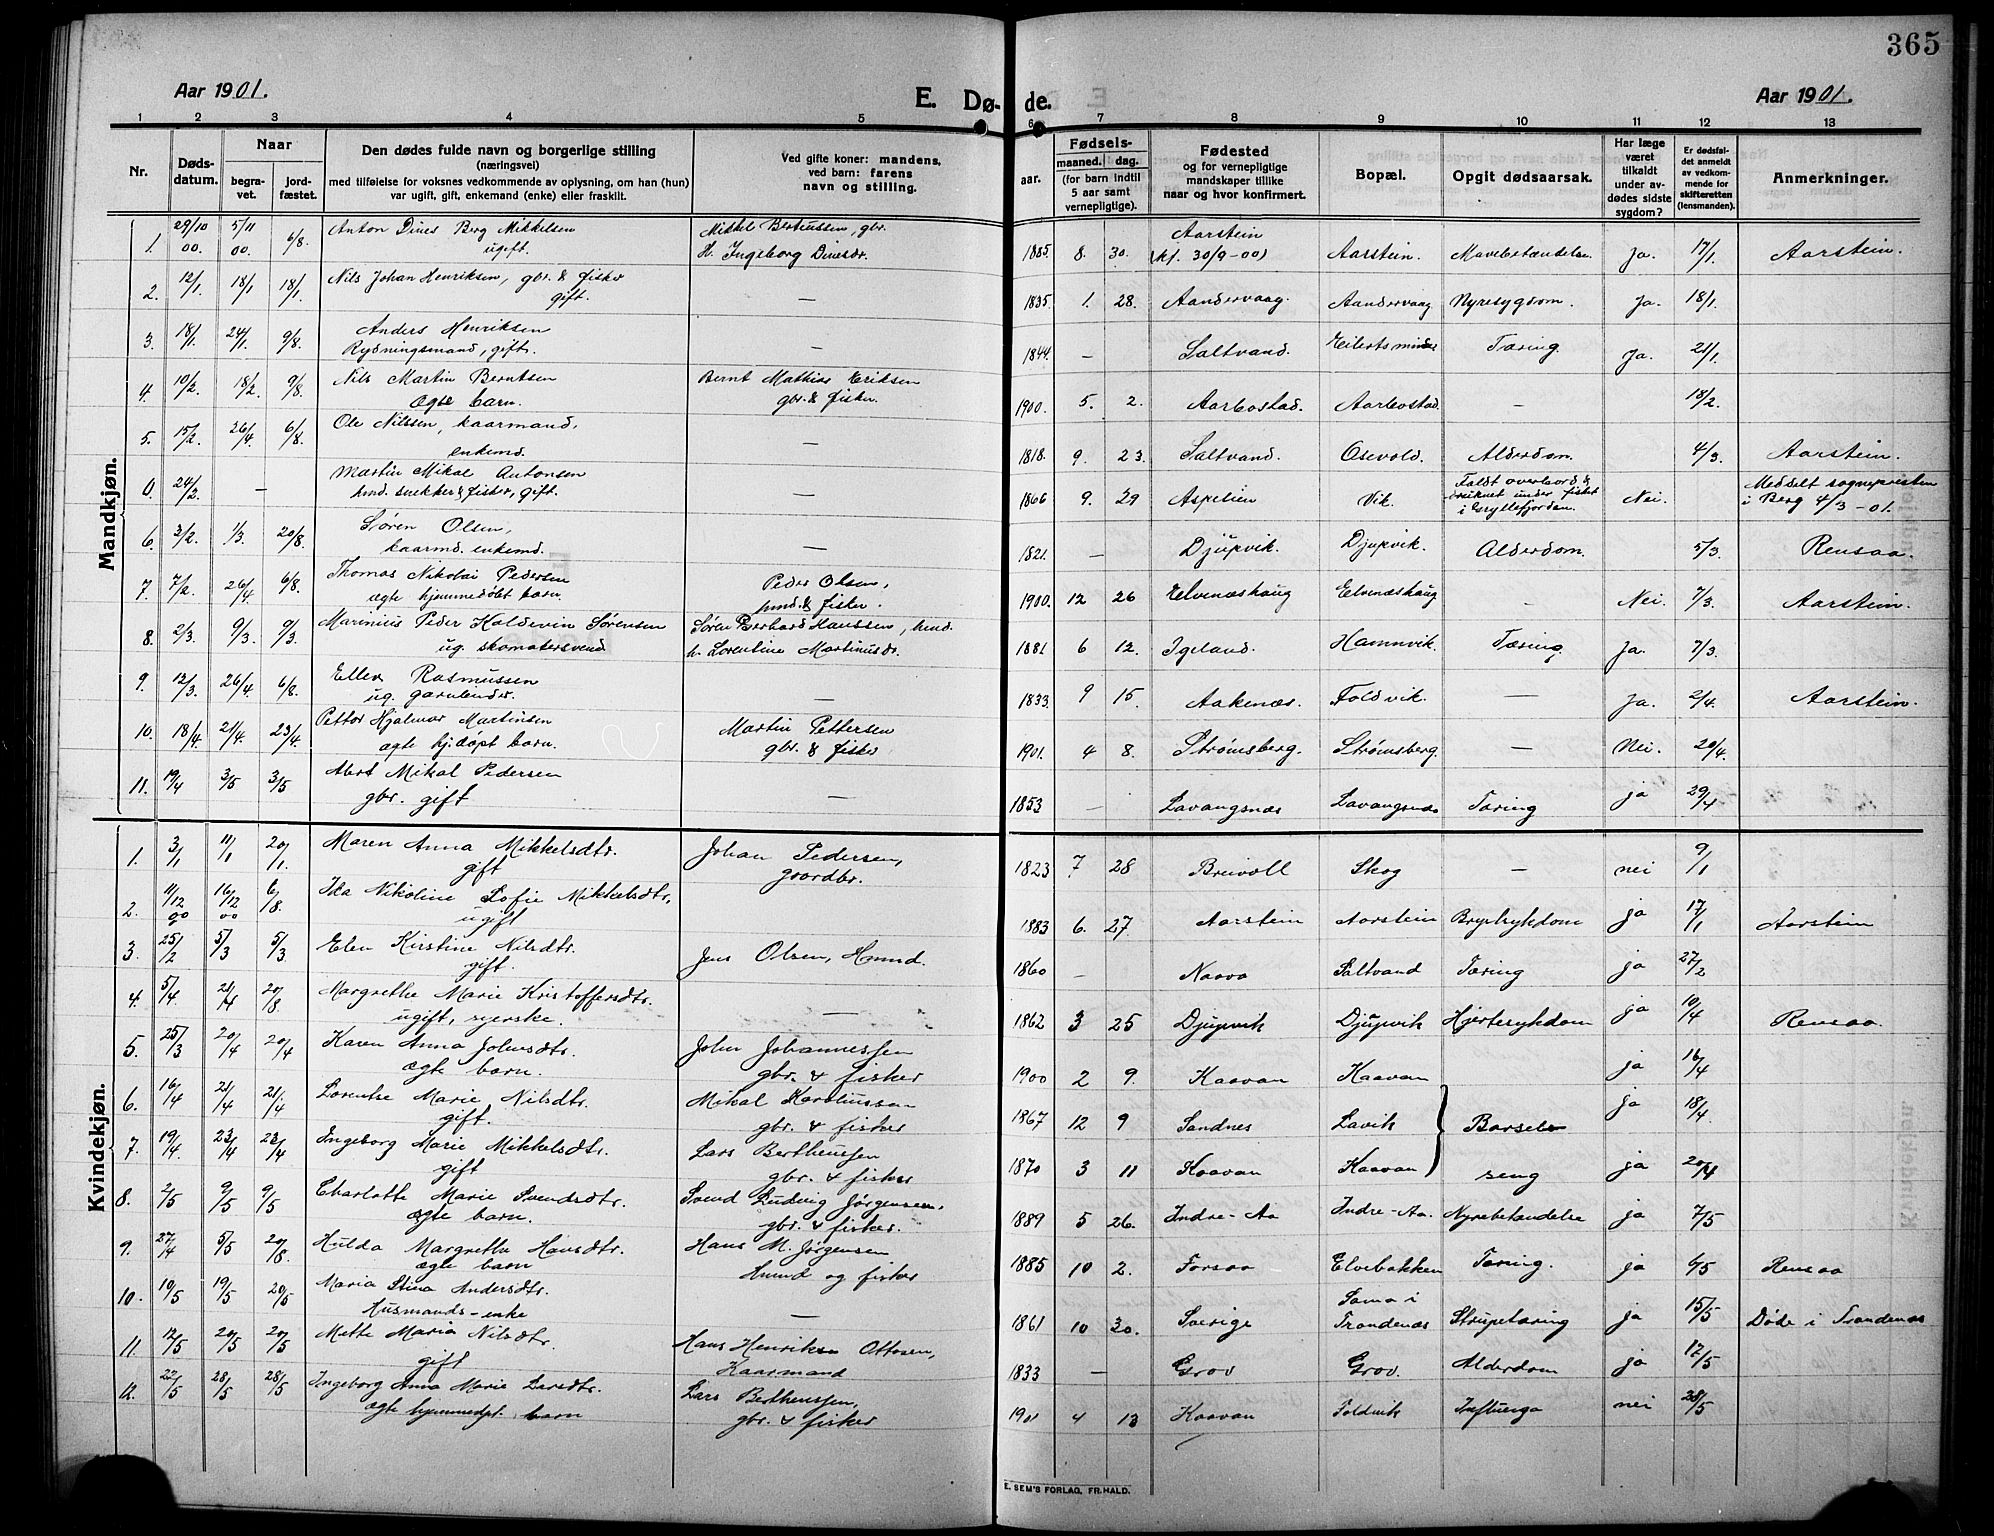 365
Aar 1901.
E. Dø- de.
Aar 1901.
1 2 3 4 5 6 7 8 9 10 11 12 13
Nr.
Døds-
datum.
Naar
begra-
vet.
jord-
fæstet.
Den dødes fulde navn og borgerlige stilling
(næringsvei)
med tilføielse for voksnes vedkommende av oplysning, om han (hun)
var ugift, gift, enkemand (enke) eller fraskilt.
Ved gifte koner: mandens,
ved barn: farens
navn og stilling.
Fødsels-
aar.
maaned. dag.
(for barn indtil
5 aar samt
vernepligtige).
Fødested
og for vernepligtige
mandskaper tillike
naar og hvor konfirmert.
Bopæl.
Opgit dødsaarsak.
Har læge
været
tilkaldt
under av-
dødes sidste
sygdom?
Er dødsfal-
det anmeldt
av vedkom-
mende for
skifteretten
(lensmanden).
Anmerkninger.
Mandkjøn.
1. 29/10 00. 5/11 00. 6/8. Anton Dines Berg Mikkelsen Mikkel Berteussen, gbr.
ugift. H. Ingeborg Dinesdr. 1885. 8. 30. Aarstein (kf. 30/9-00) Aarstein. Mavebetændelse. Ja. 17/1. Aarstein.
2. 12/1. 18/1 18/1. Nils Johan Henriksen, gbr. & fisker
gift. — 1835. 1. 28. Aandervaag. Aandervaag Nyresygdom. Ja. 18/1.
3. 18/1. 24/1. 9/8. Anders Henriksen
Rydningsmand, gift. — 1844. — Saltvand. Eilertsminde Tæring. Ja. 21/1.
4. 10/2. 18/2. 9/8. Nils Martin Berntsen Bernt Mathias Eriksen
ægte barn. gbr. & fisker. 1900. 5. 2. Aarbostad. Aarbostad. — 18/2.
5. 15/2. 26/4. 6/8. Ole Nilssen, kaarmand,
enkemd. — 1818. 9. 23. Saltvand. Osevold. Alderdom. 4/3. Aarstein.
0. 24/2. — Martin Mikal Antonsen
hmd. snekker & fisker, gift. — 1866 9. 29 Aspelien Vik. Faldt overbord &
druknet under fisket
i Gryllefjorden. Nei. Meddelt sognepresten
i Berg 4/3-01.
6. 3/2. 1/3. 20/8. Søren Olsen,
kaarmd. enkemd. — 1821. — Djupvik. Djupvik. Alderdom. 5/3. Rensaa.
7. 7/2. 26/4. 6/8. Thomas Nikolai Pedersen Peder Olsen,
ægte hjemmedøbt barn. hmd. & fisker. 1900. 12 26 Elvenæshaug Elvenæshaug — Nei. 7/3. Aarstein.
8. 2/3. 9/3. 9/3. Marinius Peder Koldevin Sørensen Søren Berhard Hanssen, hmd.
ug. skomakersvend. h. Lorentine Martinusdr. 1881. 6 12. Igeland. Hamnvik. Tæring. Ja. 7/3.
9. 12/3. 26/4. 6/8. Ellev Rasmussen
ug. garnbinder. — 1833. 9 15. Aakenæs. Foldvik. — Ja. 2/4. Aarstein.
10. 18/4. 21/4. 23/4. Petter Hjalmar Martinsen Martin Pettersen
ægte hj.døpt barn. gbr. & fisker 1901. 4 8. Strømsberg. Strømsberg. — Nei. 20/4.
11. 19/4 3/5 3/5 Abert Mikal Pedersen
gbr. gift — 1853 — Lavangsnæs Lavangsnæs Tæring ja 29/4
Kvindekjøn.
1. 3/1 11/1 20/1. Maren Anna Mikkelsdtr. Johan Pedersen,
gift gaardbr. 1823 7 28 Breivoll Skog — nei 9/1
2. 11/12 00 16/12 00 6/8. Ida Nikoline Sofie Mikkelsdtr,
ugift 1883 6. 27. Aarstein Aarstein Brystsykdom ja 17/1 Aarstein
3. 25/2 5/3 5/3 Elen Kirstine Nilsdtr. Jens Olsen, Hmnd.
gift. 1860 — Saltvand Tæring ja 27/2
4. 5/4 21/4 20/8. Margrethe Marie Kristoffersdtr.
ugift, syerske. — 1862 3 25 Djupvik Djupvik Hjertesykdom ja 10/4 Rensaa.
5. 25/3 20/4 20/4 Karen Anna Johnsdtr. John Johannessen
ægte barn. gbr. & fisker 1900 2 9. Kaavan Kaavan ja 16/4
6. 16/4 21/4 21/4 Lorentse Marie Nilsdtr. Mikal Karoliussen
gift. gbr. & fisker 1867 12 9 Sandnes Lavik Barsel- ja 18/4
7. 19/4. 23/4 23/4 Ingeborg Marie Mikkelsdtr. Lars Bertheussen
gift gbr. & fisker 1870 3 11 Kaavan Kaavan seng ja 20/4
8. 2/5 9/5 9/5 Charlotte Marie Svendsdtr. Svend Ludvig Jørgensen,
ægte barn. gbr. & fisker. 1889 5 26. Indre-Aa Indre-Aa. Nyrebetændelse ja 7/5
9. 27/4 5/5 20/8. Hulda Margrethe Hansdtr. Hans M. Jørgensen
ægte barn Hmnd og fisker 1885 10 2. Forsaa Elvebakken Tæring. ja 6/5 Rensaa
10. 10/5 19/5 20/5 Maria Stina Andersdtr.
Husmands-enke — 1861 10 30. Sverige Sama i
Trondenæs Strupetæring ja 15/5 Døde i Trondenæs
11. 12/5 20/5 20/5 Mette Maria Nilsdtr. Hans Henriksen Ottosen,
gift Kaarmand 1833 — Grov Grov. Alderdom ja 17/5
12. 22/5 28/5 28/5 Ingeborg Anna Marie Larsdtr. Lars Bertheussen,
ægte hjemmedpt. barn gbr. & fisker 1901 4 13 Kaavan Foldvik Influenza nei 28/5
E. SEM'S FORLAG, FR.HALD.